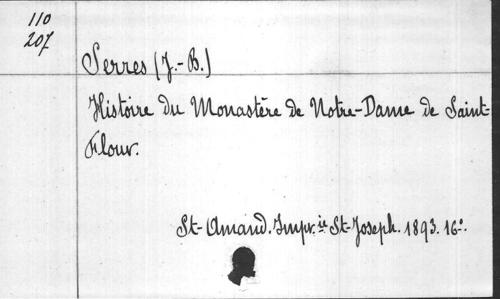 110
207
Serres (J.-B.)
Histoire du Monastère de Notre-Dame de Saint-
Flour.
St-Amand. Impr.ie St-Joseph. 1893. 16o.